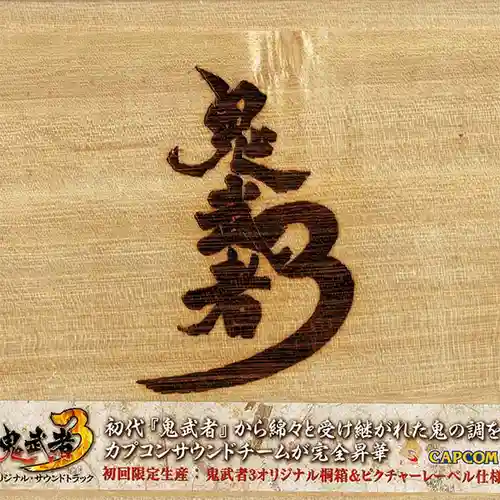 鬼武者3
鬼武者3
リジナル・サウンドトラック
初代『鬼武者』から綿々と受け継がれた鬼の調を
カプコンサウンドチームが完全昇華
CAPCOM
初回限定生産：鬼武者3オリジナル桐箱&ピクチャーレーベル仕様